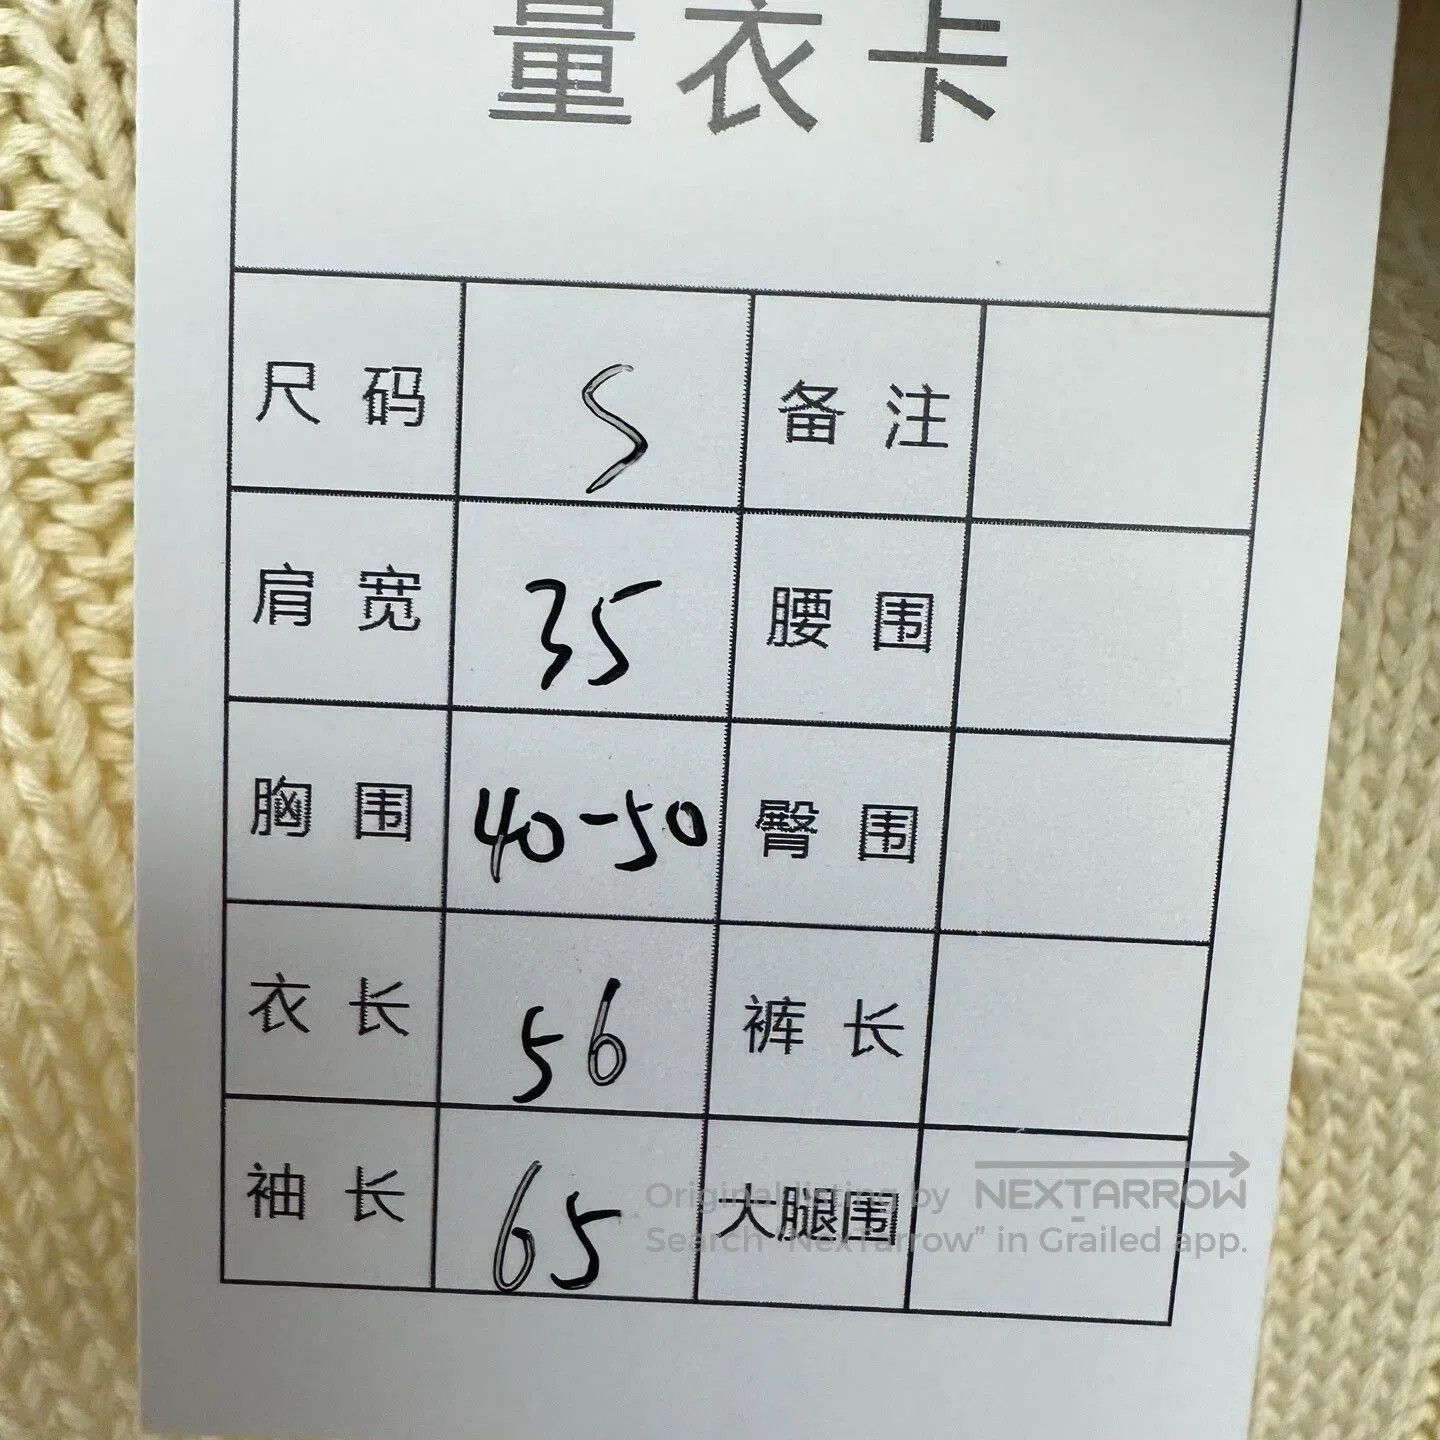 量衣卡
尺码 S 备注
肩宽 35 腰围
胸围 40-50 臀围
衣长 56 裤长
袖长 65 大腿围
Original listing by NEXTARROW
Search "NexTarrow" in Grailed app.